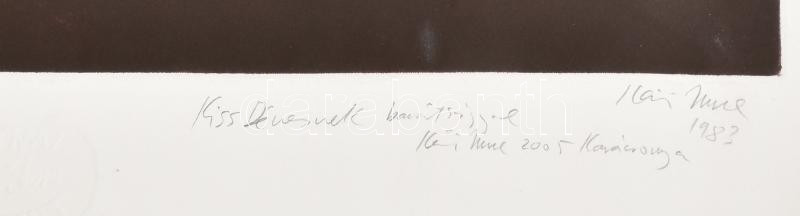 Kéri Imre
1983
Kiss Dénesnek barátsággal
Kéri Imre 2005 Karácsonya
darabanth